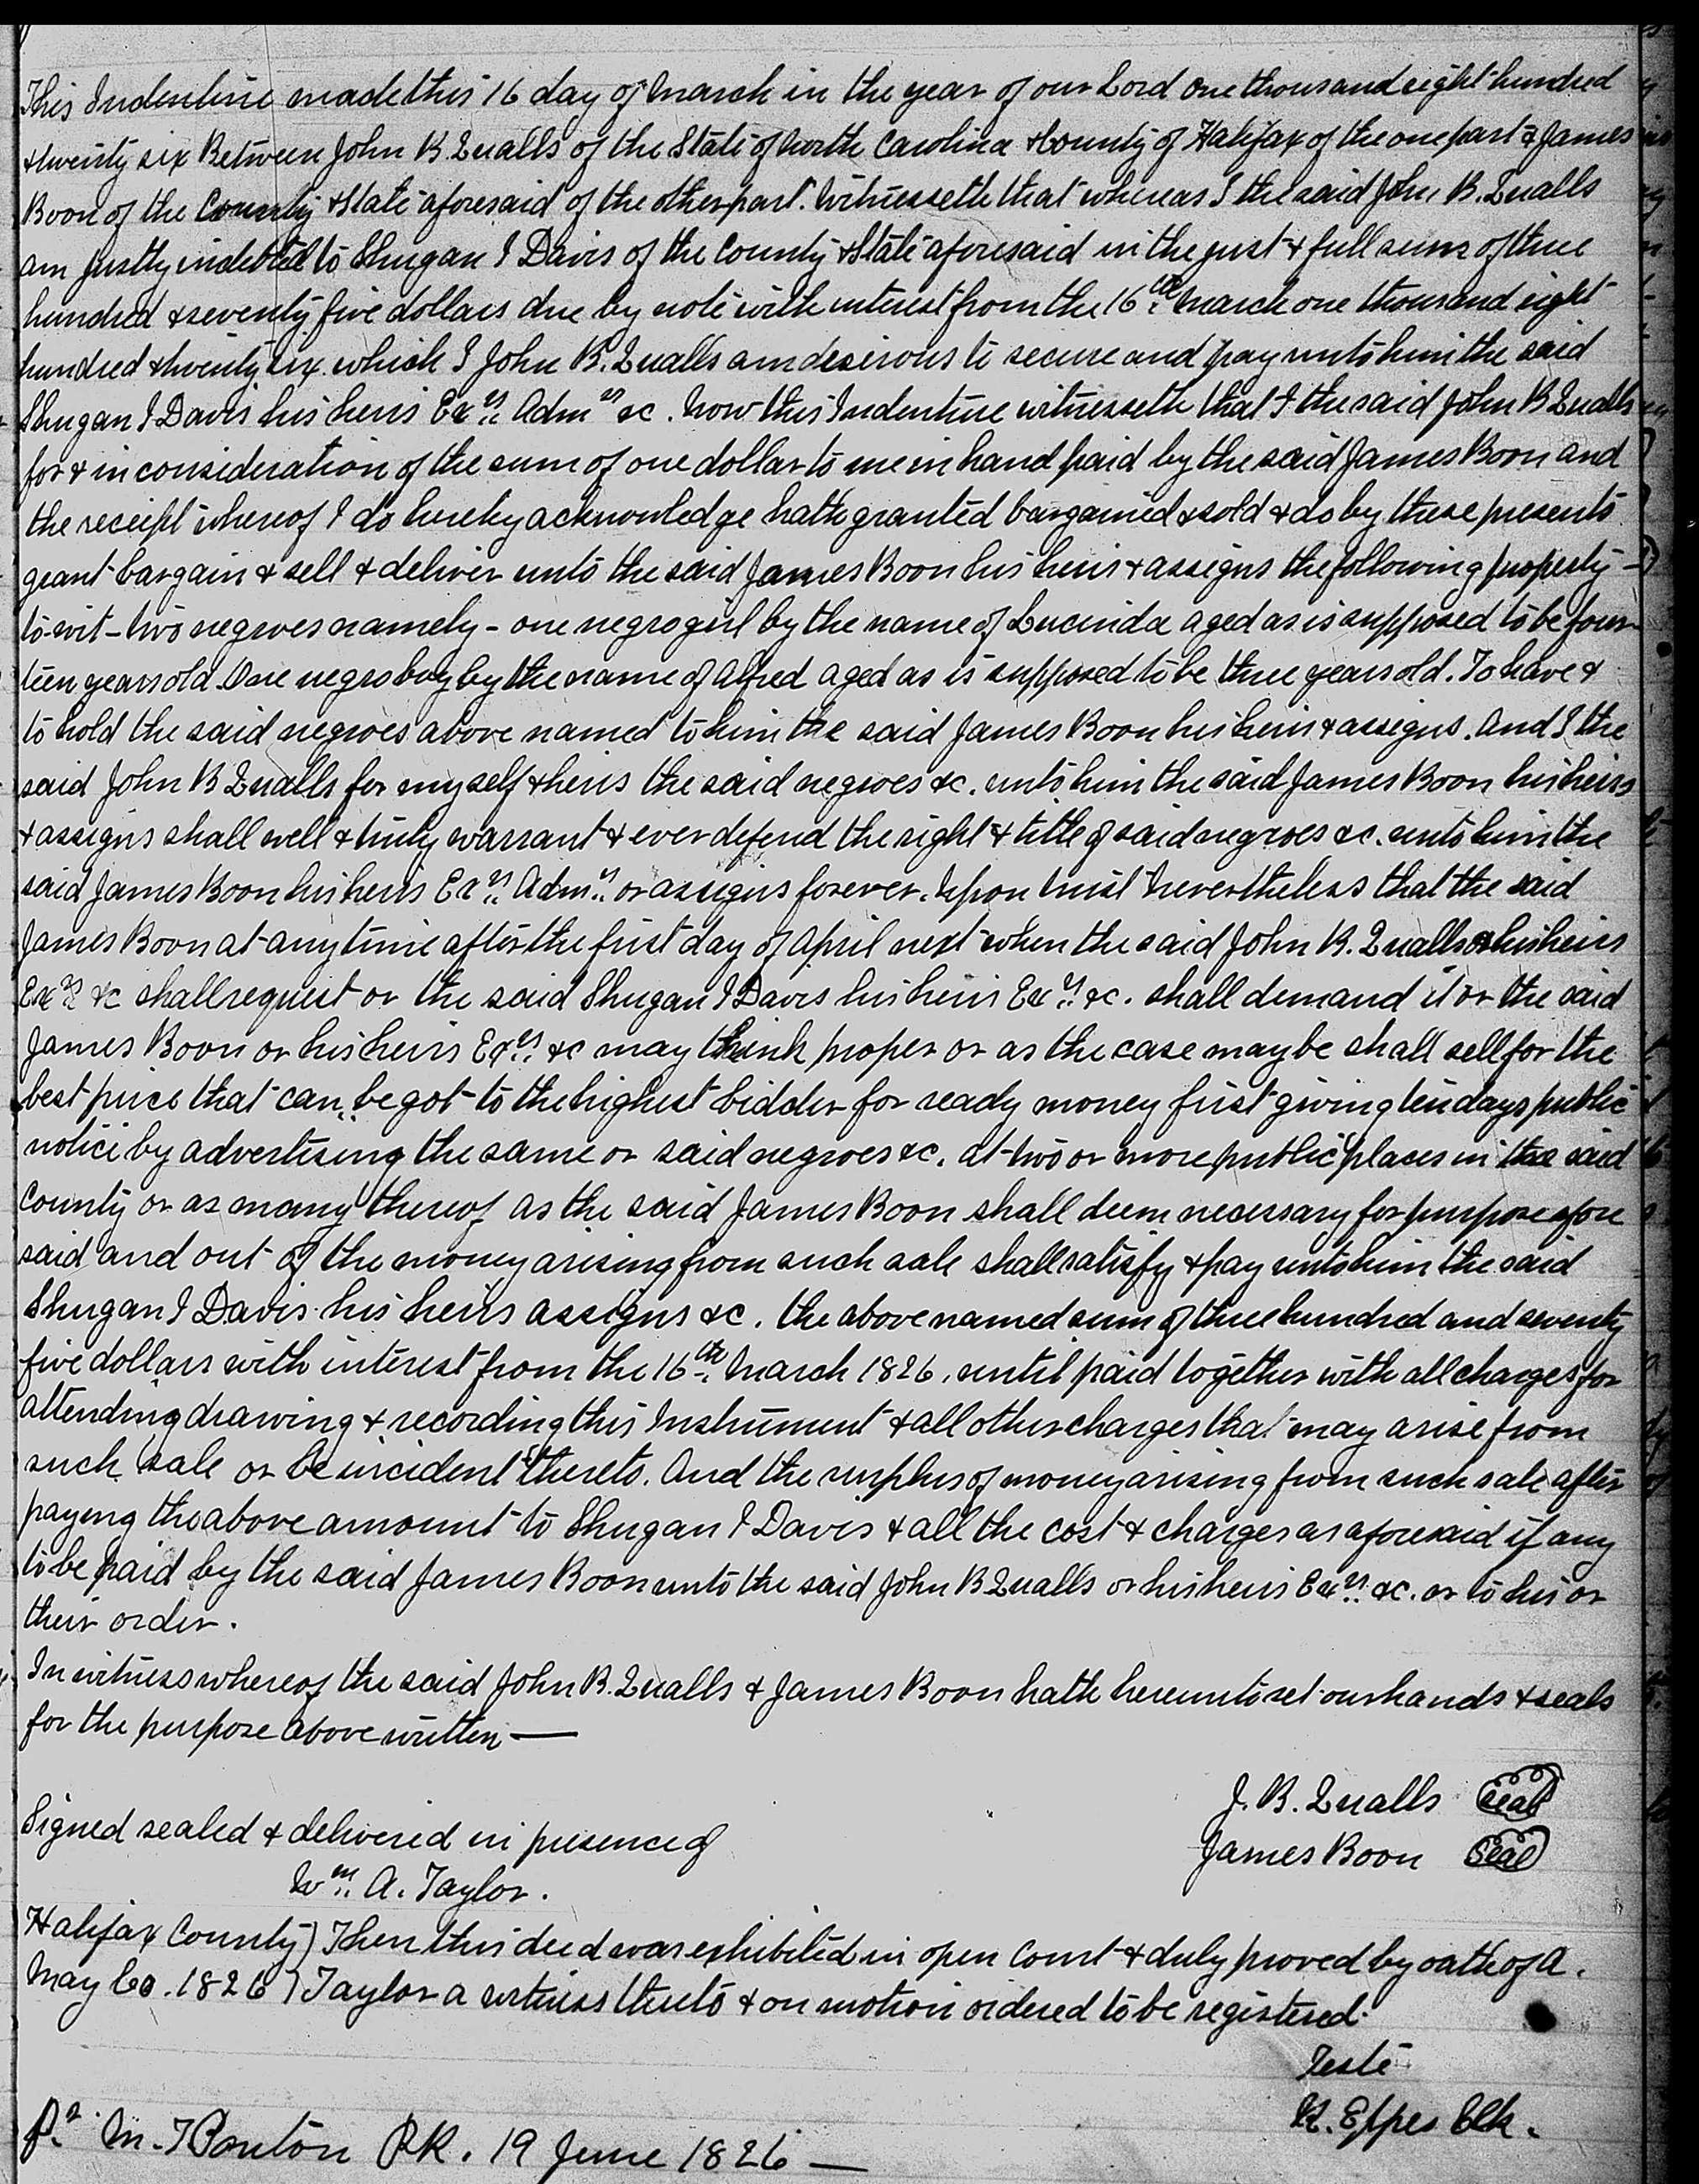 This Indenture made this 16 day of March in the year of our Lord One thousand eight hundred
& twenty six Between John B. Qualls of the State of North Carolina & County of Halifax of the one part & James
Boon of the County & State aforesaid of the other part. Witnesseth that whereas I the said John B. Qualls
am justly indebted to Shugan I Davis of the County & State aforesaid in the just & full sum of three
hundred & seventy five dollars due by note with interest from the 16th. March one thousand eight
hundred & twenty six. which I John B. Qualls am desirous to secure and pay unto him the said
Shugan I Davis his heirs Exrs. Admrs &c. Now this Indenture witnesseth that I the said John B Qualls
for & in consideration of the sum of one dollar to me in hand paid by the said James Boon and
the receipt whereof I do hereby acknowledge hath granted bargained & sold & do by these presents
grant bargain & sell & deliver unto the said James Boon his heirs & assigns the following property -
to wit - two negroes namely - one negro girl by the name of Lucinda aged as is supposed to be four-
teen years old. One negro boy by the name of Alfred aged as is supposed to be three years old. To have &
to hold the said negroes above named to him the said James Boon his heirs & assigns. And I the
said John B Qualls for myself & heirs the said negroes &c. unto him the said James Boon his heirs
& assigns shall well & truly warrant & ever defend the right & title of said negroes &c. unto him the
said James Boon his heirs Exrs. Admrs. or assigns forever. Upon trust nevertheless that the said
James Boon at any time after the first day of April next when the said John B. Qualls or his heirs
Exrs &c shall request or the said Shugan I Davis his heirs Exrs. &c. shall demand it or the said
James Boon or his heirs Exrs. &c may think proper or as the case may be shall sell for the
best price that can be got to the highest bidder for ready money first giving ten days public
notice by advertising the same or said negroes &c. at two or more public places in the said
County or as many thereof as the said James Boon shall deem necessary for purpose afore
said and out of the money arising from such sale shall satisfy & pay unto him the said
Shugan I Davis his heirs assigns &c. the above named sum of three hundred and seventy
five dollars with interest from the 16th. March 1826. until paid together with all charges for
attending drawing & recording this Instrument & all other charges that may arise from
such sale or be incident thereto. And the surplus of money arising from such sale after
paying the above amount to Shugan I Davis & all the cost & charges as aforesaid if any
to be paid by the said James Boon unto the said John B Qualls or his heirs Exrs. &c. or to his or
their order.
In witness whereof the said John B. Qualls & James Boon hath hereunto set our hands & seals
for the purpose above written —
J. B. Qualls Seal
Signed sealed & delivered in presence of
James Boon Seal
Wm. A. Taylor.
Halifax County) Then this deed was exhibited in open Court & duly proved by oath of A.
May Co. 1826 ) Taylor a witness thereto & on motion ordered to be registered.
Teste
R. Eppes Clk.
Pr. M. T Ponton P.R. 19 June 1826 —